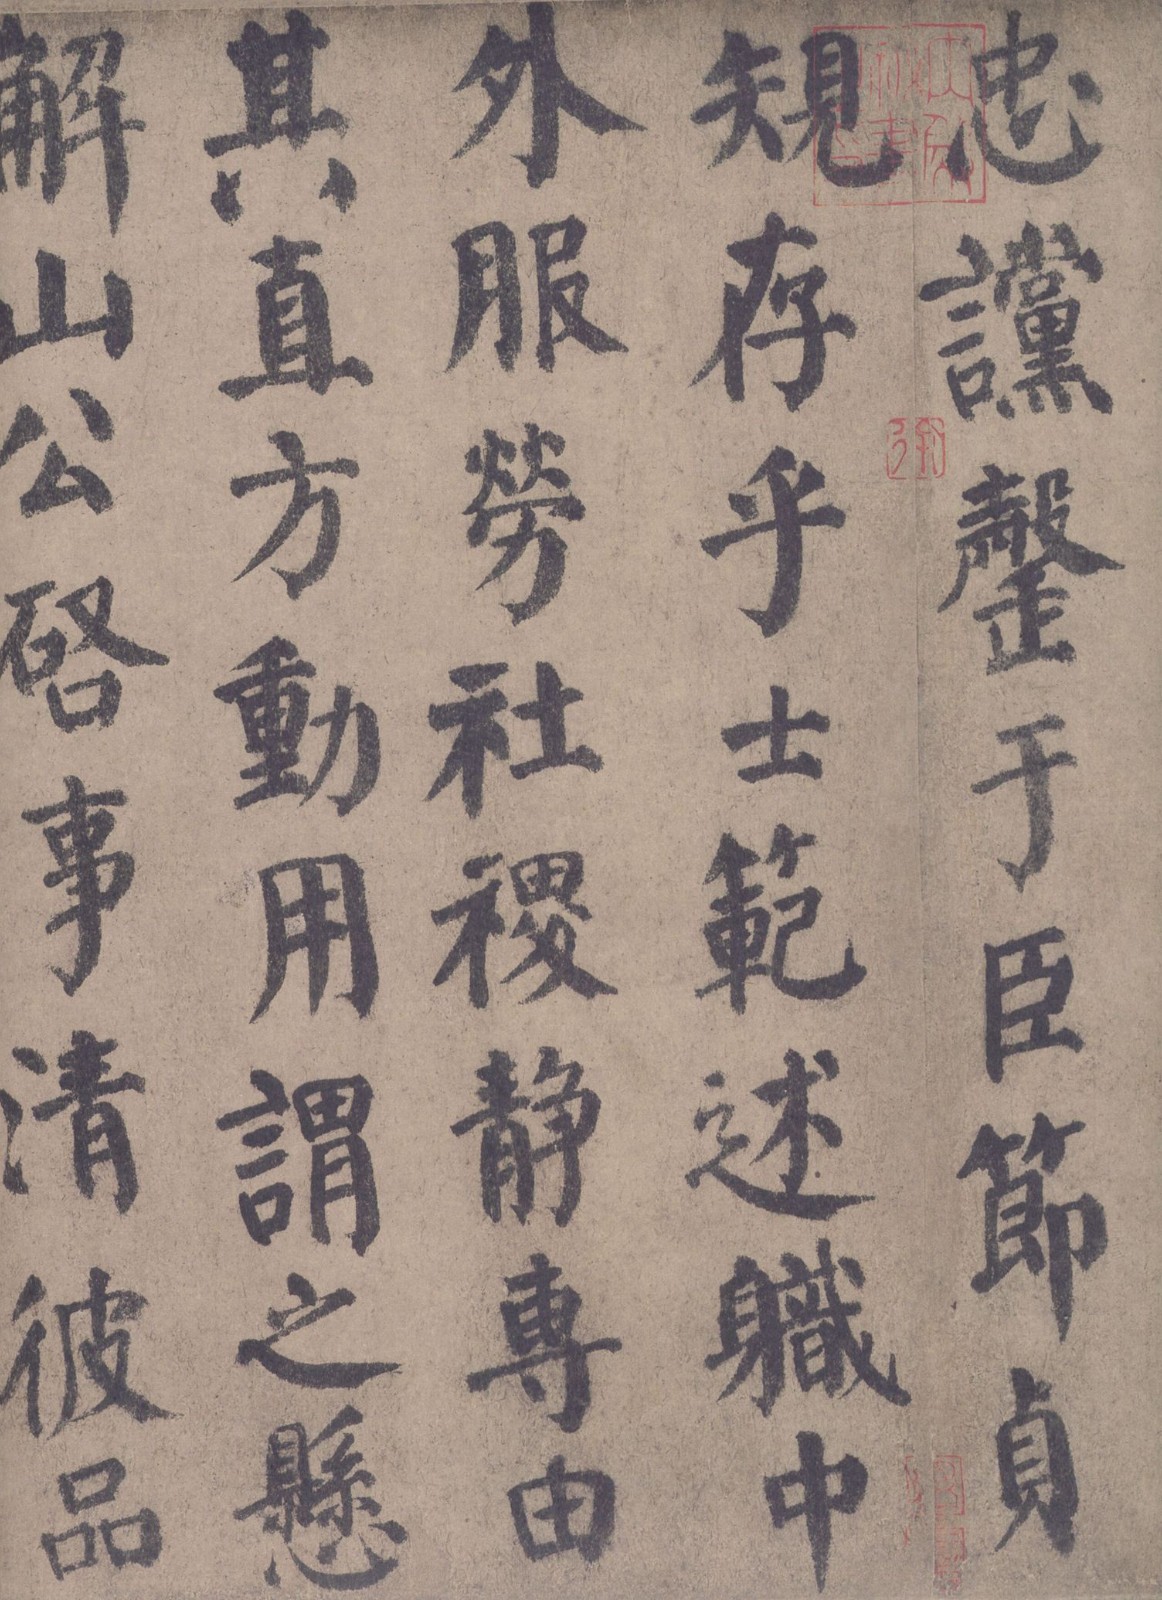 忠讜罄于臣節貞
䂓存乎士範述軄中
外服勞社稷静專由
其直方動用謂之懸
解山公啓事清彼品